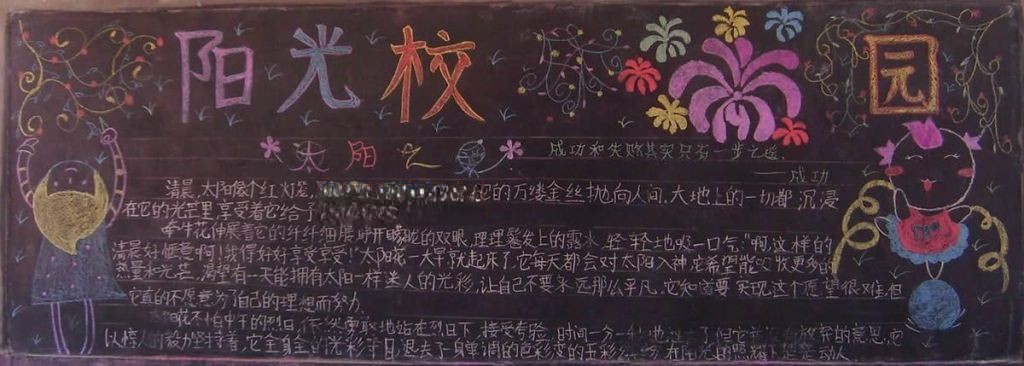 阳光校园
太阳之
成功和失败其实只有一步之遥.
——成功
清晨.太阳像个红灯笼,把它的万缕金丝抛向人间.大地上的一切都沉浸
在它的光芒里享受着它给予
牵牛花伸展着它的纤纤细腰,睁开朦胧的双眼.理理鬓发上的露水.轻轻地吸一口气."啊,这样的
清晨好惬意啊!我得好好享受享受!"太阳花一大早就起床了,它每天都会对太阳入神.它希望能吸收更多的
热量和光芒.渴望有一天能拥有太阳一样迷人的光彩,让自己不要永远那么平凡.它知道要实现这个愿望很难但
它真的不愿意为了自己的理想而努力.
它不怕中午的烈日.地站在烈日下.接受考验.时间一分一秒地过去了但它并没有放弃的意思.它
以惊人的毅力坚持着.它全身全的光彩.平日退去了身单调的色彩变的五彩.在阳光的照耀下楚楚动人.